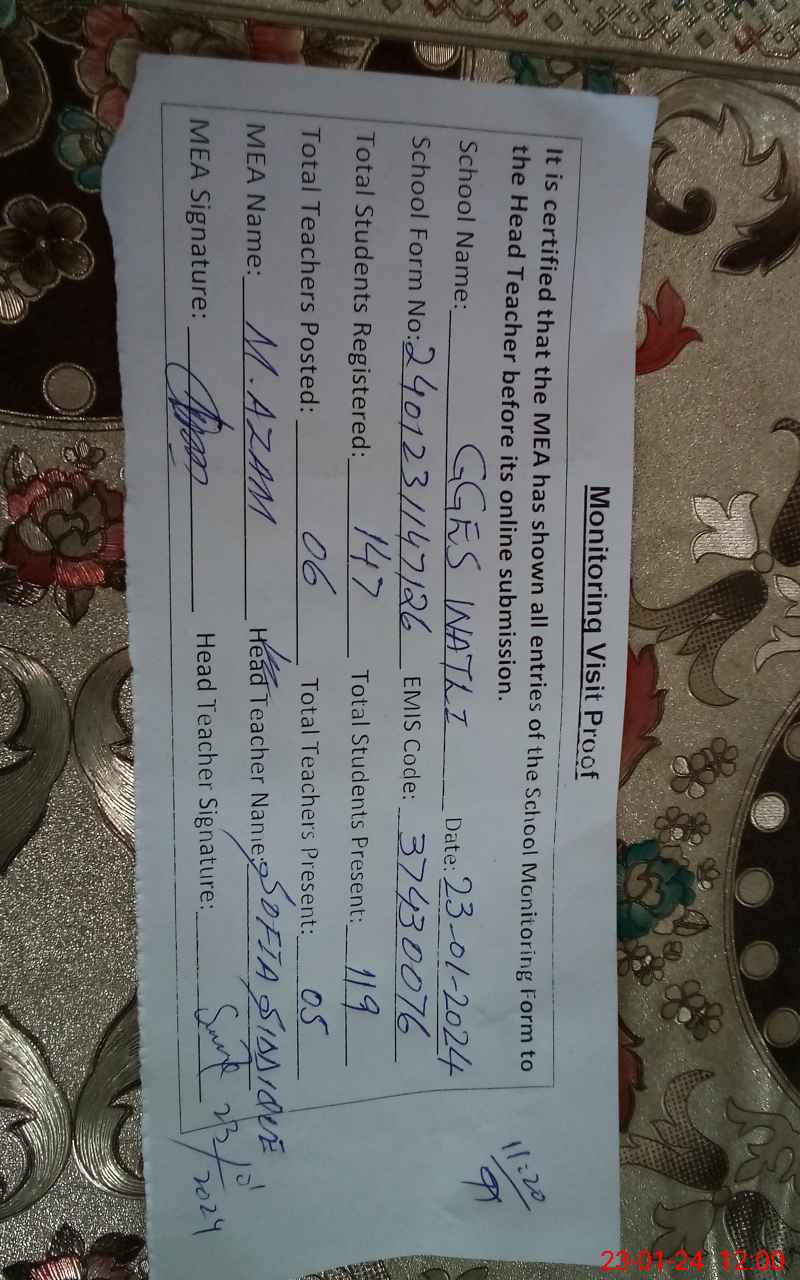 Monitoring Visit Proof
It is certified that the MEA has shown all entries of the School Monitoring Form to
the Head Teacher before its online submission.
School Name: GGES WATLI Date: 23-01-2024
School Form No: 2401231147126 EMIS Code: 37430076
Total Students Registered: 147 Total Students Present: 119
Total Teachers Posted: 06 Total Teachers Present: 05
MEA Name: M. AZAM Head Teacher Name: SOFIA SIDDIQUE
MEA Signature: Head Teacher Signature:
23/01/2024
11:20
23-01-24 12:00